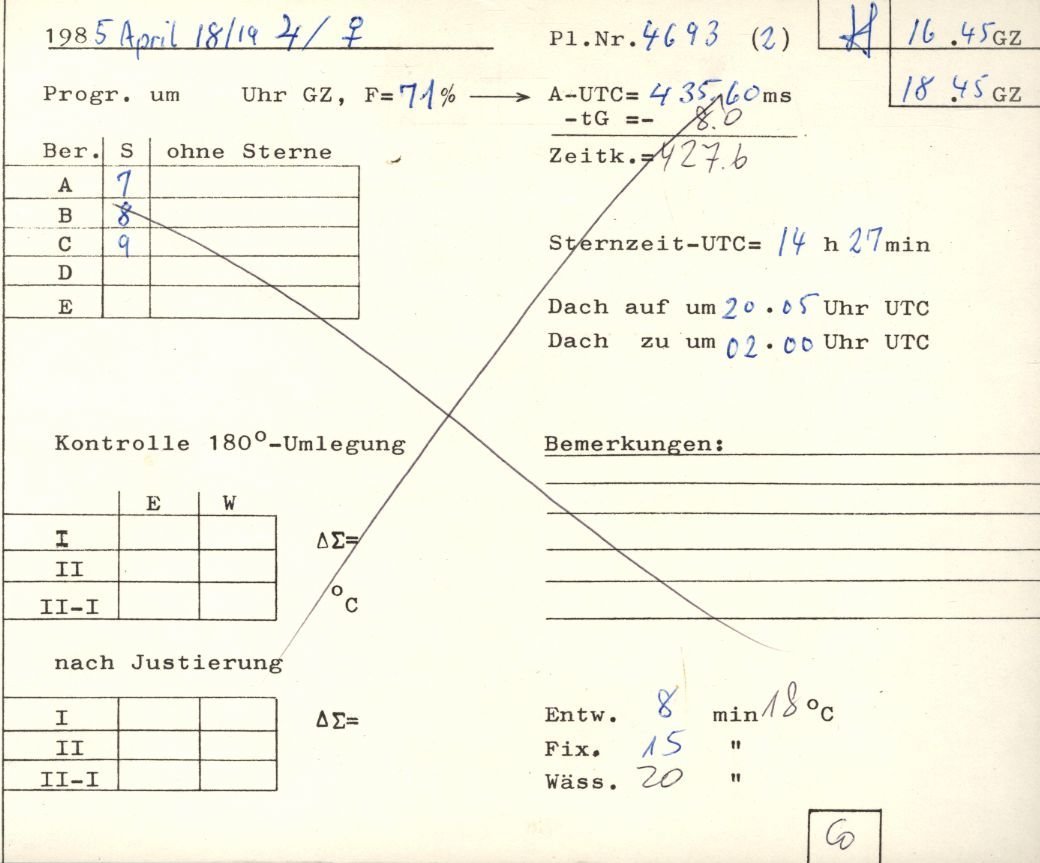 1985 April 18/19 ♃/♀ Pl.Nr. 4693 (2) 16.45 GZ
18.45 GZ
Progr. um Uhr GZ, F=71% → A-UTC= 435.60 ms
-tG =- 8.0
Zeitk.= 427.6
Ber. S ohne Sterne
A 7
B 8
C 9
D
E
Sternzeit-UTC= 14 h 27 min
Dach auf um 20.05 Uhr UTC
Dach zu um 02.00 Uhr UTC
Kontrolle 180°-Umlegung
E W
I ΔΣ=
II
II-I °C
nach Justierung
I ΔΣ=
II
II-I
Bemerkungen:
Entw. 8 min 18 °C
Fix. 15 "
Wäss. 20 "